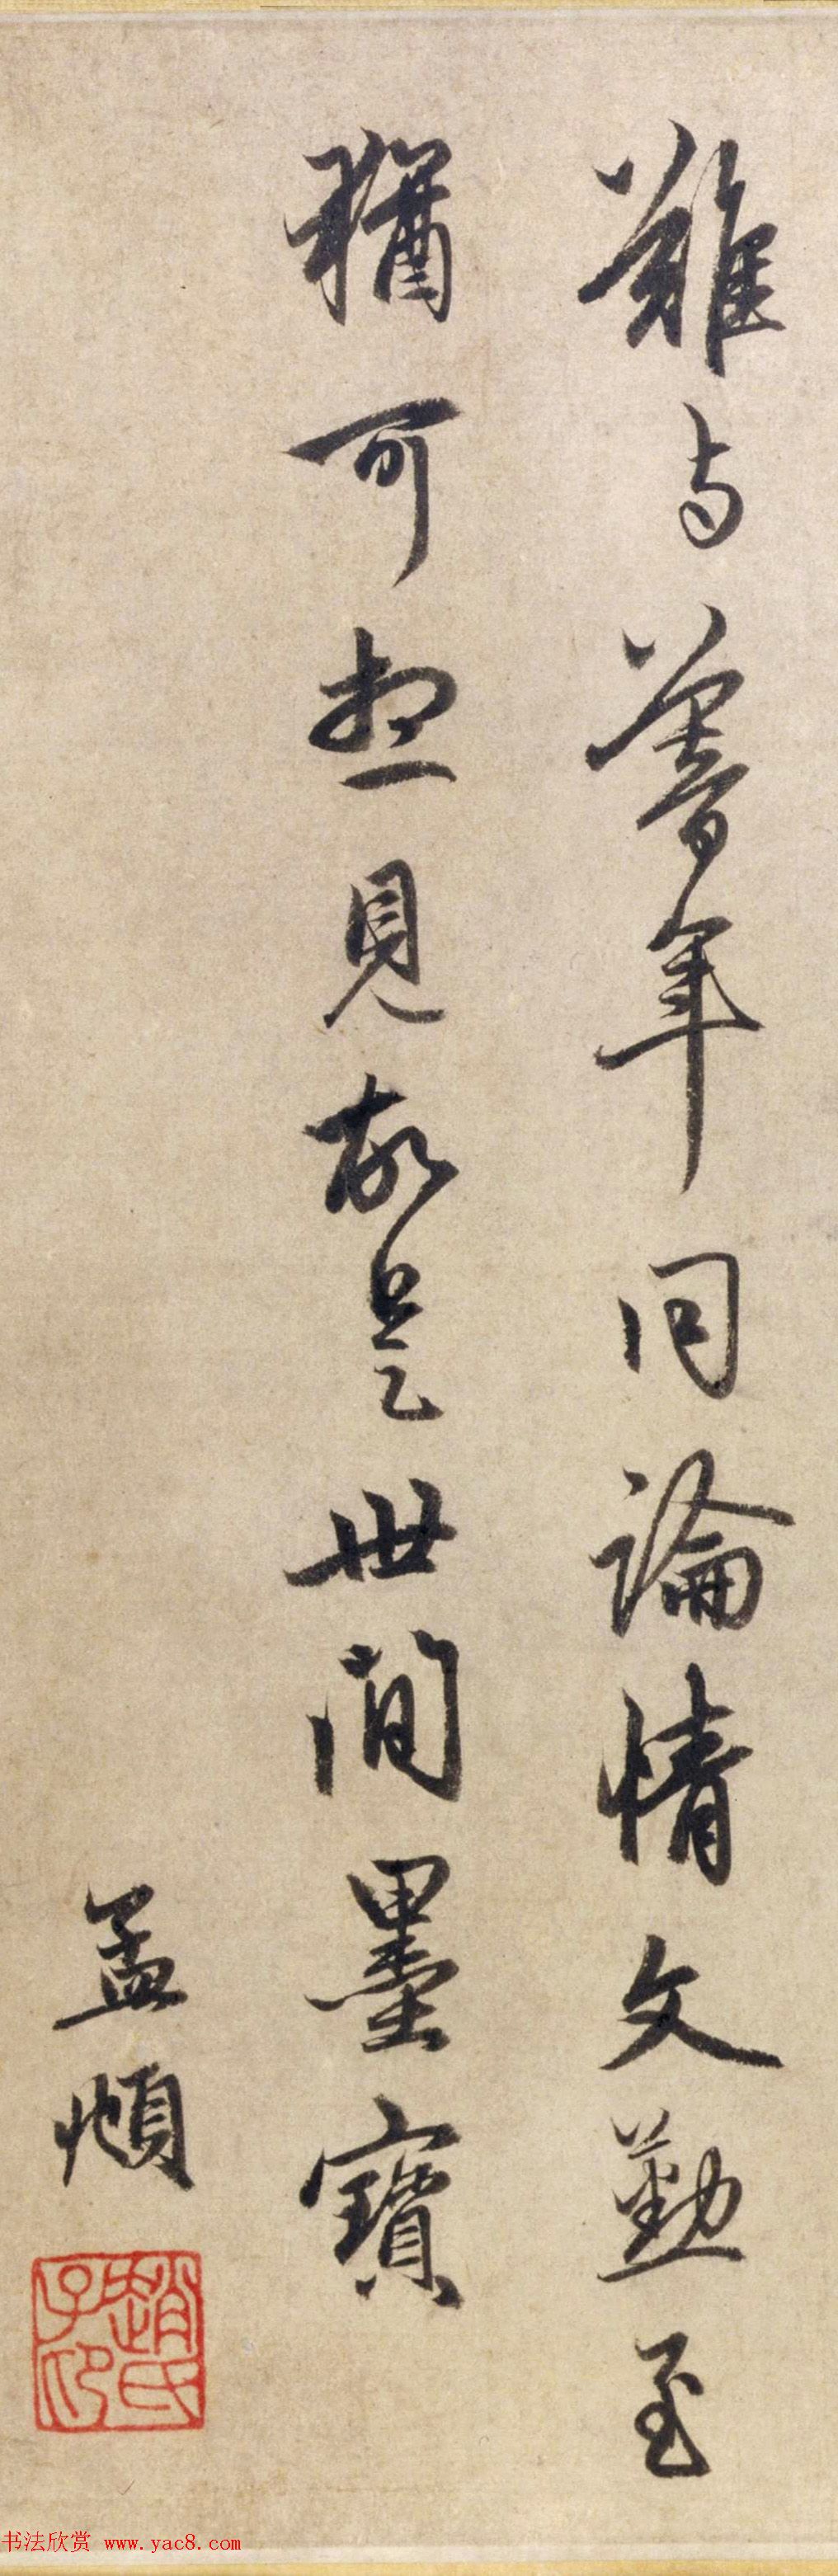 難与暮年同論情文勤至
猶可想見故是世間墨寶
孟頫
趙氏子印
书法欣赏 www.yac8.com